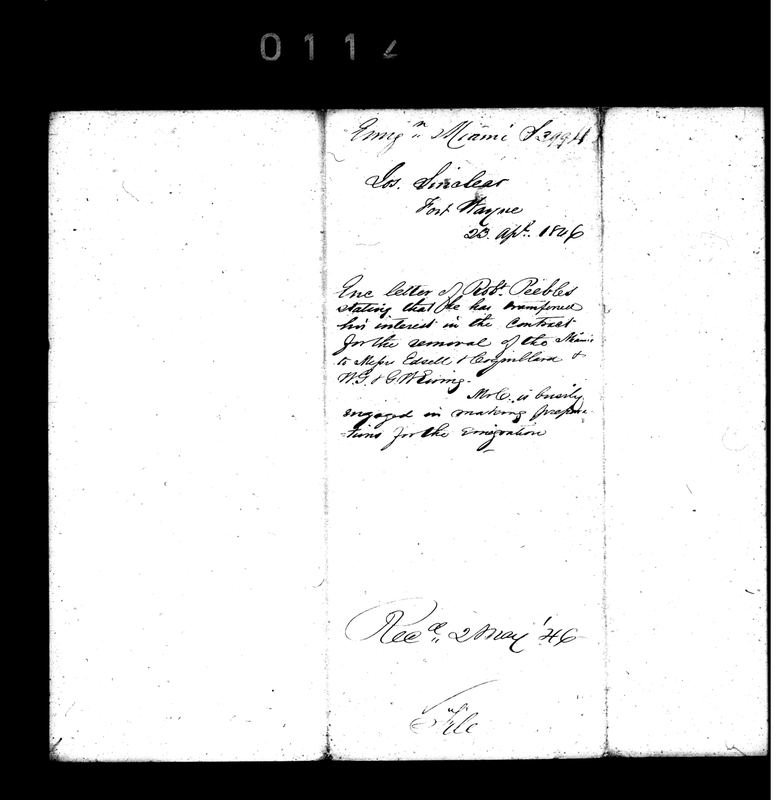 011
Emign Miami S3994
Jos. Sinclear
Fort Wayne
23 Apl. 1846
Enc letter of Robt. Peebles
stating that he has transferred
his interest in the contract
for the removal of the Miamis
to Messrs Edsell & Coquillard &
W.G. & G W Ewing.
Mr C. is busily
engaged in making prepara-
tions for the emigration
Recd 2 May '46
File